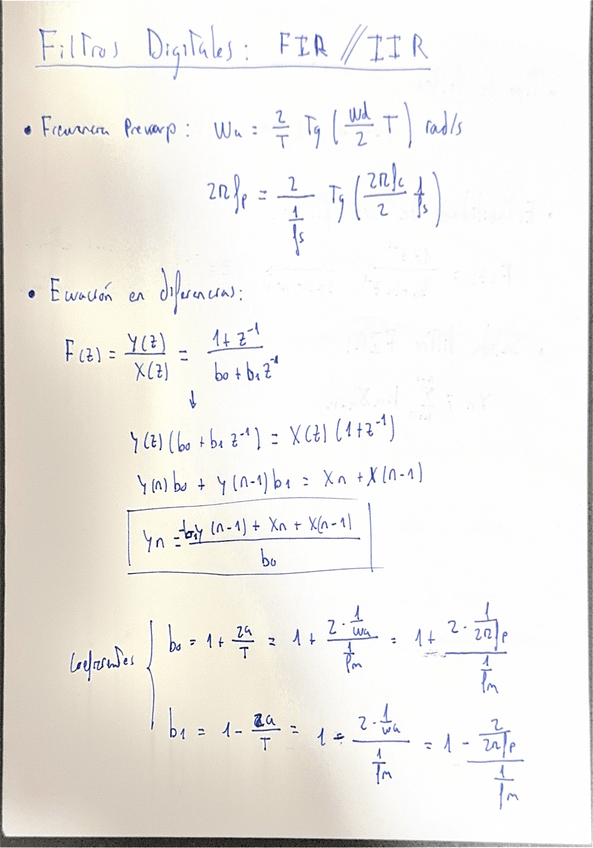 Filtros Digitales: FIR // IIR
• Frecuencia Prewarp: Wa = 2/T Tg (Wd/2 T) rad/s
2πfp = 2/(1/fs) Tg (2πfc/2 1/fs)
• Ecuación en diferencias:
F(z) = Y(z)/X(z) = (1+z⁻¹)/(b0+b1z⁻¹)
↓
Y(z)(b0+b1z⁻¹) = X(z)(1+z⁻¹)
Y(n)b0 + Y(n-1)b1 = Xn + X(n-1)
Yn = (-b1y(n-1) + Xn + X(n-1))/b0
Coeficientes
b0 = 1 + 2a/T = 1 + (2·1/wa)/(1/fm) = 1 + (2·1/2πfp)/(1/fm)
b1 = 1 - 2a/T = 1 - (2·1/wa)/(1/fm) = 1 - (2/2πfp)/(1/fm)